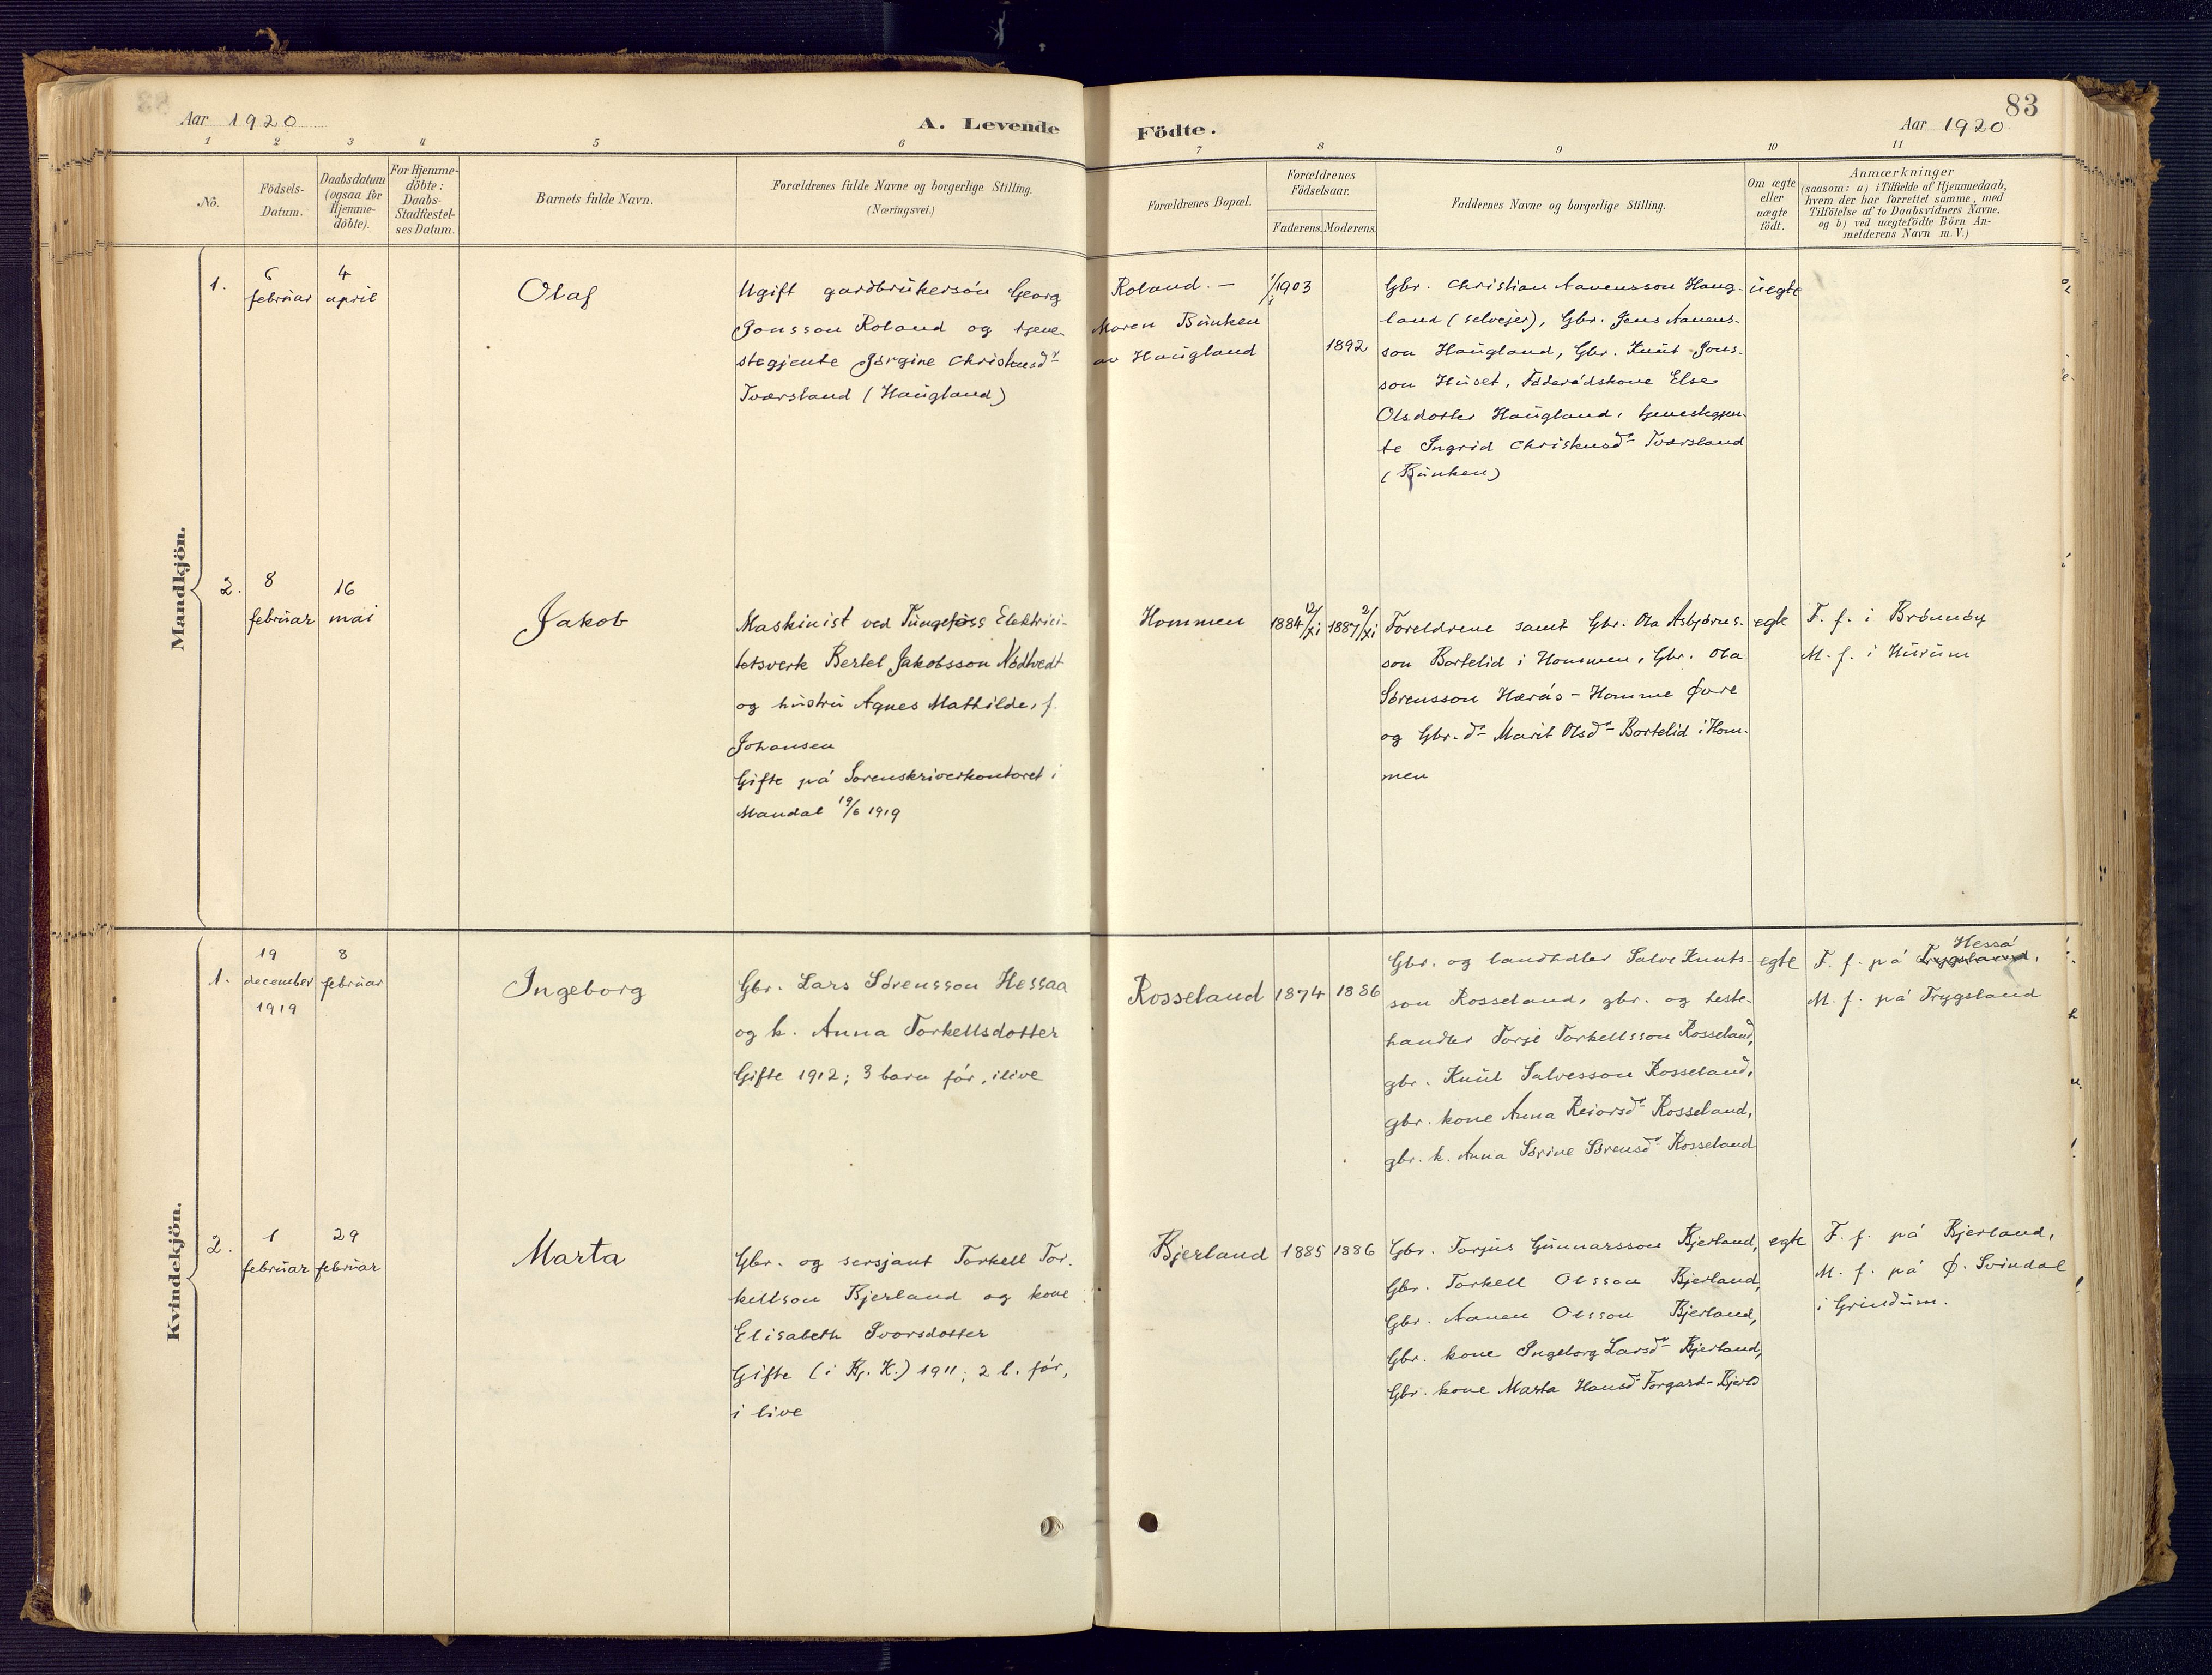 83
Aar 1920
A. Levende
Födte.
Aar 1920
1 2 3 4 5 6 7 8 9 10 11
No.
Födsels-
Datum.
Daabsdatum
(ogsaa for
Hjemme-
döbte).
For Hjemme-
döbte:
Daabs-
Stadfæstel-
ses Datum.
Barnets fulde Navn.
Forældrenes fulde Navne og borgerlige Stilling.
(Næringsvei.)
Forældrenes Bopæl.
Forældrenes
Födselsaar.
Faderens. Moderens.
Faddernes Navne og borgerlige Stilling.
Om ægte
eller
uægte
födt.
Anmærkninger
(saasom: a) i Tilfælde af Hjemmedaab,
hvem der har forrettet samme, med
Tilföielse af to Daabsvidners Navne.
og b) ved uægtefödte Börn An-
melderens Navn m. V.)
Mandkjön.
1.
6
februar
4
april
Olaf
Ugift gardbrukersøn Georg
Jonsson Roland og tjene-
stegjente Jørgine Christensdr
Tværsland (Haugland)
Roland. —
Maren Bunken
av Haugland
1/1 1903
1892
Gbr. Christian Aanensson Haug-
land (selvejer), Gbr. Jens Aanens-
son Haugland, Gbr. Knut Jons-
son Huset, Føderådskone Else
Olsdotter Haugland, tjenestegjen-
te Ingrid Christensdr Tværsland
(Bunken)
uegte
2.
8
februar
16
mai
Jakob
Maskinist ved Tungefoss Elektrici-
tetsverk Bertel Jakobsson Nødtvedt
og hustru Agnes Mathilde, f.
Johansen
Gifte på Sorenskriverkontoret i
Mandal 19/6 1919
Hommen
1884 12/xi
1887 2/xi
Foreldrene samt Gbr. Ola Asbjørns-
son Bortelid i Hommen, Gbr. Ola
Sørensson Hærås - Homme Øvre
og Gbr. dr Marit Olsdr Bortelid i Hom-
men
egte
F. f. i Brønnøy
M. f. i Hurum
Kvindekjön.
1.
19
december
1919
8
februar
Ingeborg
Gbr. Lars Sørensson Hessaa
og k. Anna Torkellsdotter
Gifte 1912; 3 barn før, ilive
Rosseland
1874
1886
Gbr. og landhdler Salve Knuts-
son Rosseland, gbr. og heste-
handler Torje Torkellsson Rosseland,
gbr. Knut Salvesson Rosseland,
gbr. kone Anna Reiarsdr Rosseland,
gbr. k. Anna Sørine Sørensdr Rosseland
egte
Hesså
F. f. på Trygsland,
M. f. på Trygsland
2.
1
februar
29
februar
Marta
Gbr. og sersjant Torkell Tor-
kellson Bjerland og kone
Elisabeth Ivarsdotter
Gifte (i Bj. K.) 1911; 2 b. før,
i live
Bjerland
1885
1886
Gbr. Torjus Gunnarsson Bjerland,
Gbr. Torkell Olsson Bjerland,
Gbr. Aanen Olsson Bjerland,
Gbr. kone Ingeborg Larsdr Bjerland,
Gbr. kone Marta Hansdr Torgard-Bjerld
egte
F. f. på Bjerland,
M. f. på Ø. Svindal
i Grindum.